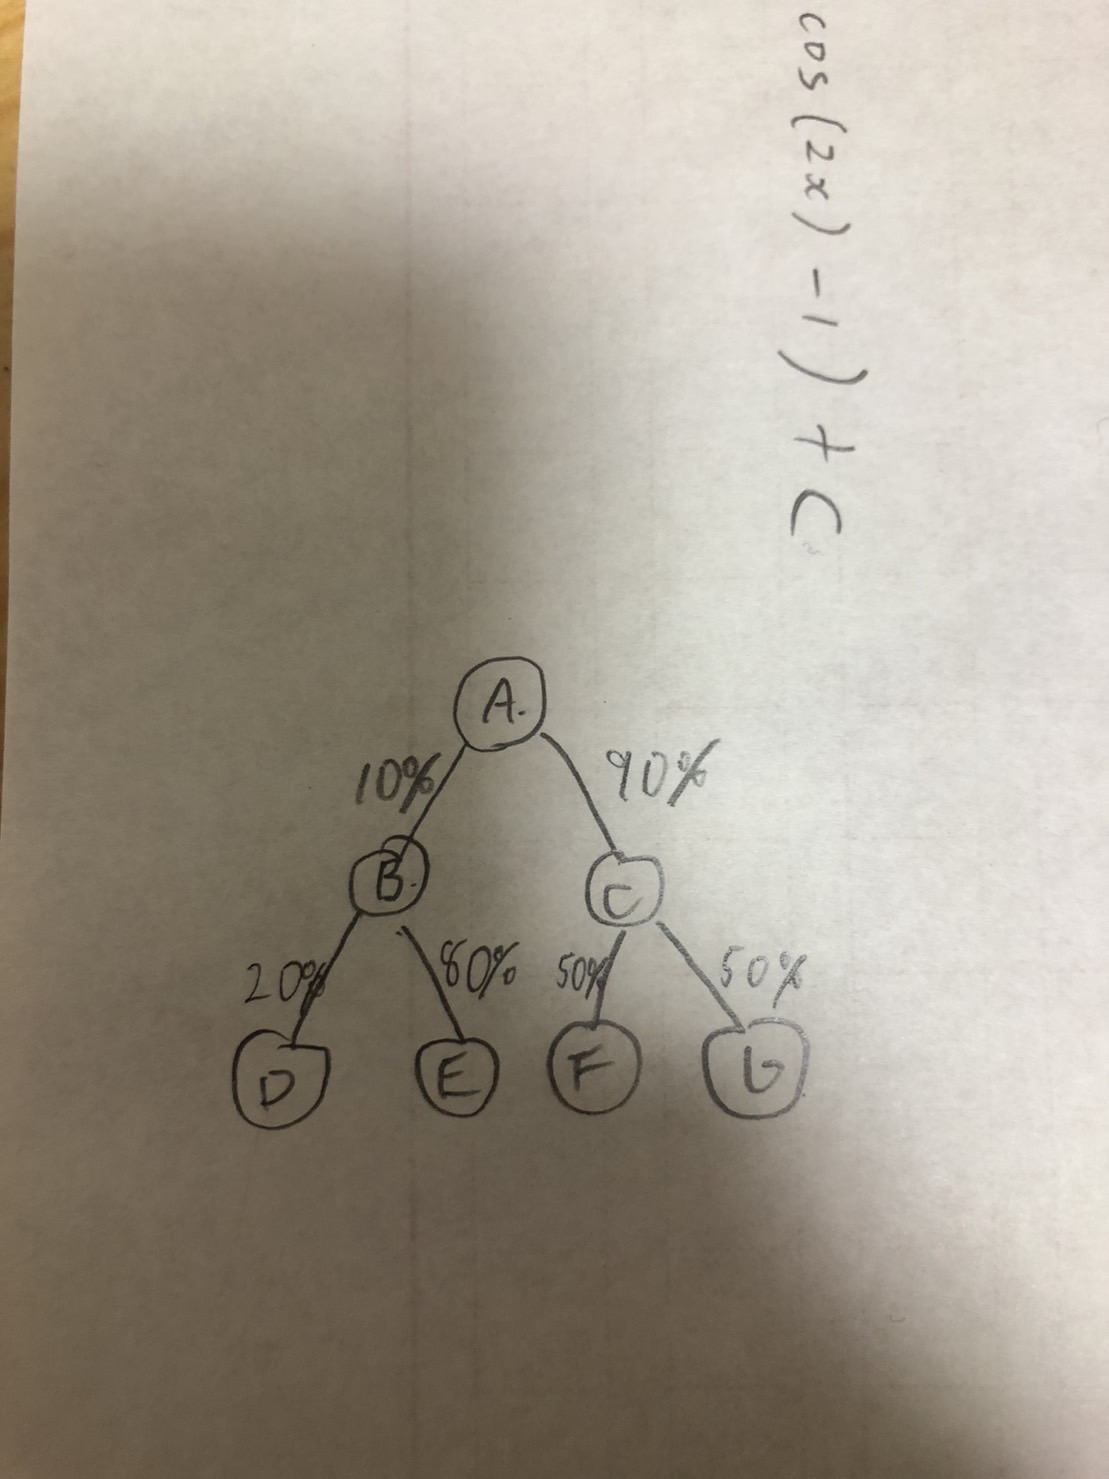 cos(2x) -1) + C
A.
10% 90%
B. C
20% 80% 50% 50%
D E F G